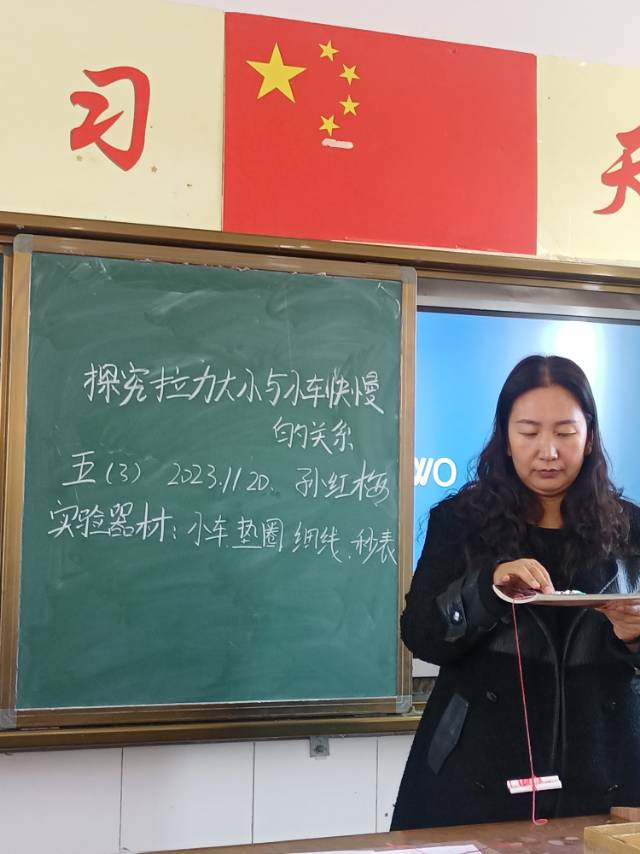 习
天
探究拉力大小与小车快慢
的关系
五(3) 2023.11.20. 孙红梅
实验器材:小车、垫圈、细线、秒表
WO